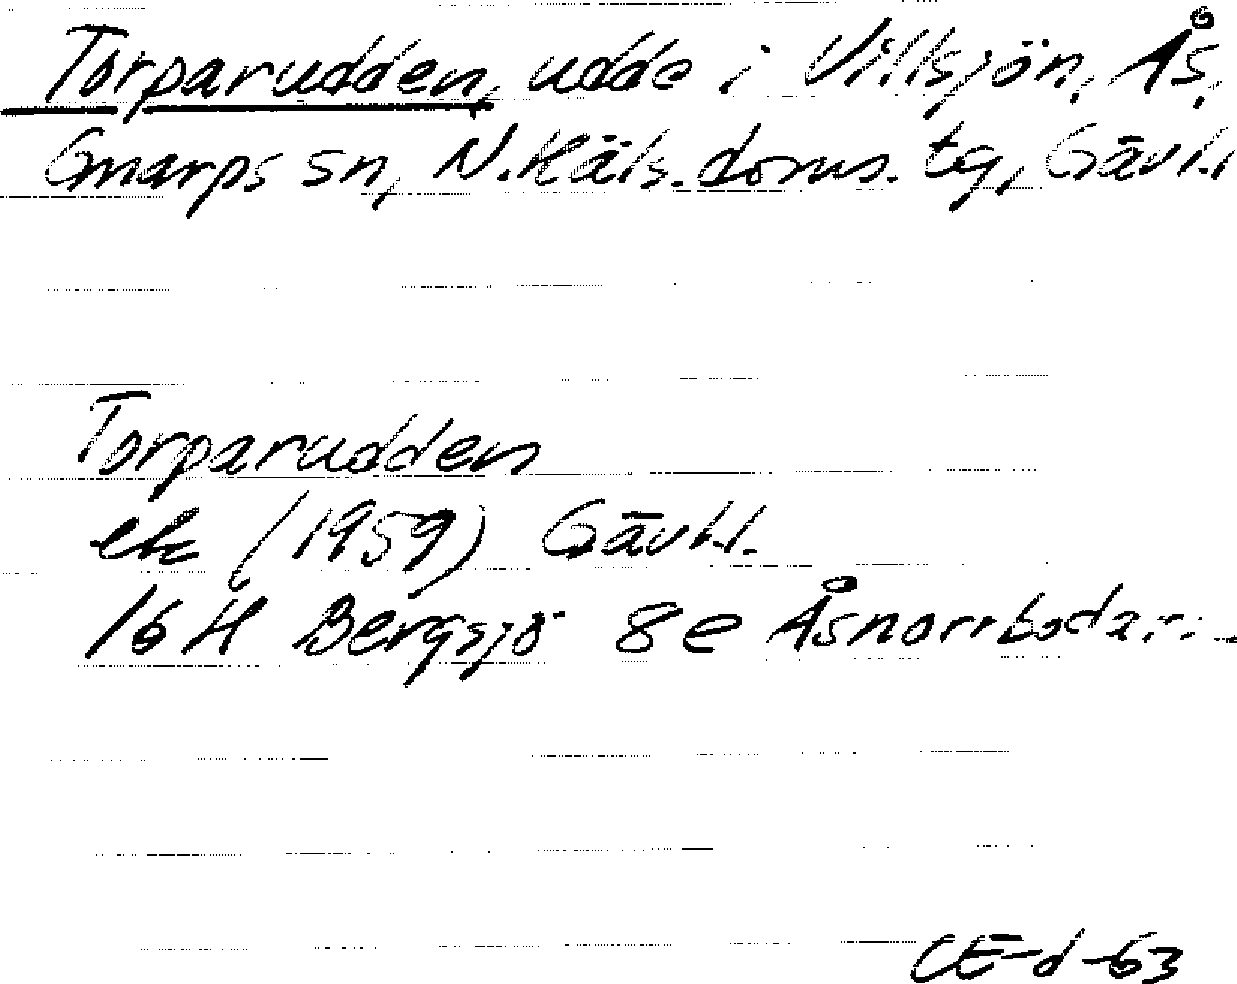 Torparudden, udde i Villsjön, Ås,
Gnarps sn, N. Häls. doms. tg, Gävl.l
Torparudden
ek (1959) Gävl.l.
16 H Bergsjö 8e Åsnorrbodar
CE-d-63